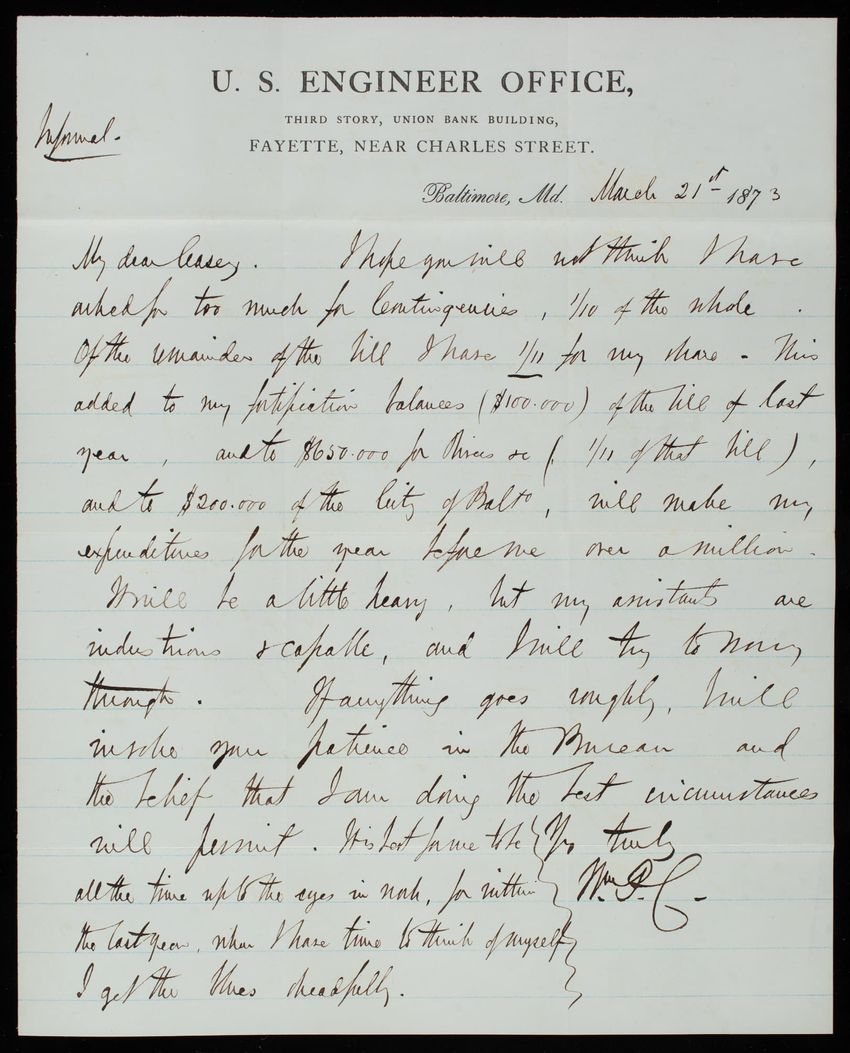 U. S. ENGINEER OFFICE,
THIRD STORY, UNION BANK BUILDING,
FAYETTE, NEAR CHARLES STREET.
Informal.
Baltimore, Md. March 21st 1873
My dear Casey. I hope you will not think I have
asked for too much for Contingencies, 1/10 of the whole.
Of the remainder of the bill I have 1/11 for my share. This
added to my fortification balances ($100.000) of the bill of last
year, and to $650.000 for Rivers &c (1/11 of that bill),
and to $200.000 of the City of Balto, will make my
expenditures for the year before me over a million.
It will be a little heavy, but my assistants are
industrious & capable, and I will try to worry
through. If anything goes roughly, I will
invoke your patience in the Bureau and
the belief that I am doing the best circumstances
will permit. It is best for me to be
all the time up to the eyes in work, for within
the last year, when I have time to think of myself
I get the blues dreadfully.
Yrs truly
Wm. P. C.